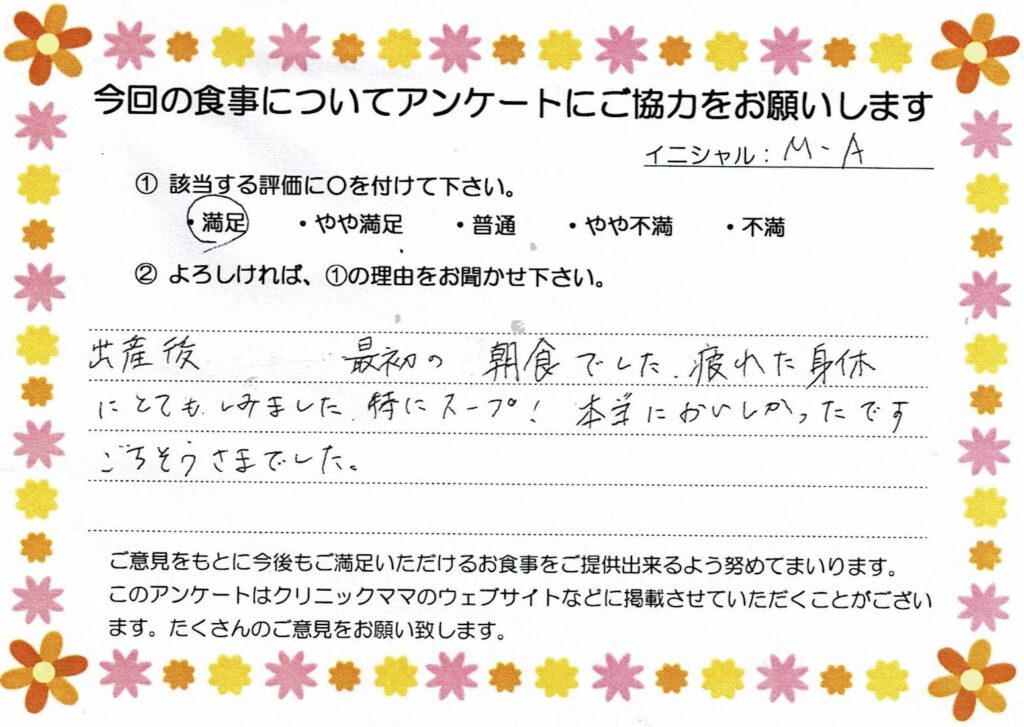 今回の食事についてアンケートにご協力をお願いします
イニシャル：M-A
① 該当する評価に〇を付けて下さい。
・満足　・やや満足　・普通　・やや不満　・不満
② よろしければ、①の理由をお聞かせ下さい。
出産後　最初の 朝食でした、疲れた身体
にとてもしみました、特にスープ！ 本当においしかったです
ごちそうさまでした。
ご意見をもとに今後もご満足いただけるお食事をご提供出来るよう努めてまいります。
このアンケートはクリニックママのウェブサイトなどに掲載させていただくことがござい
ます。たくさんのご意見をお願い致します。